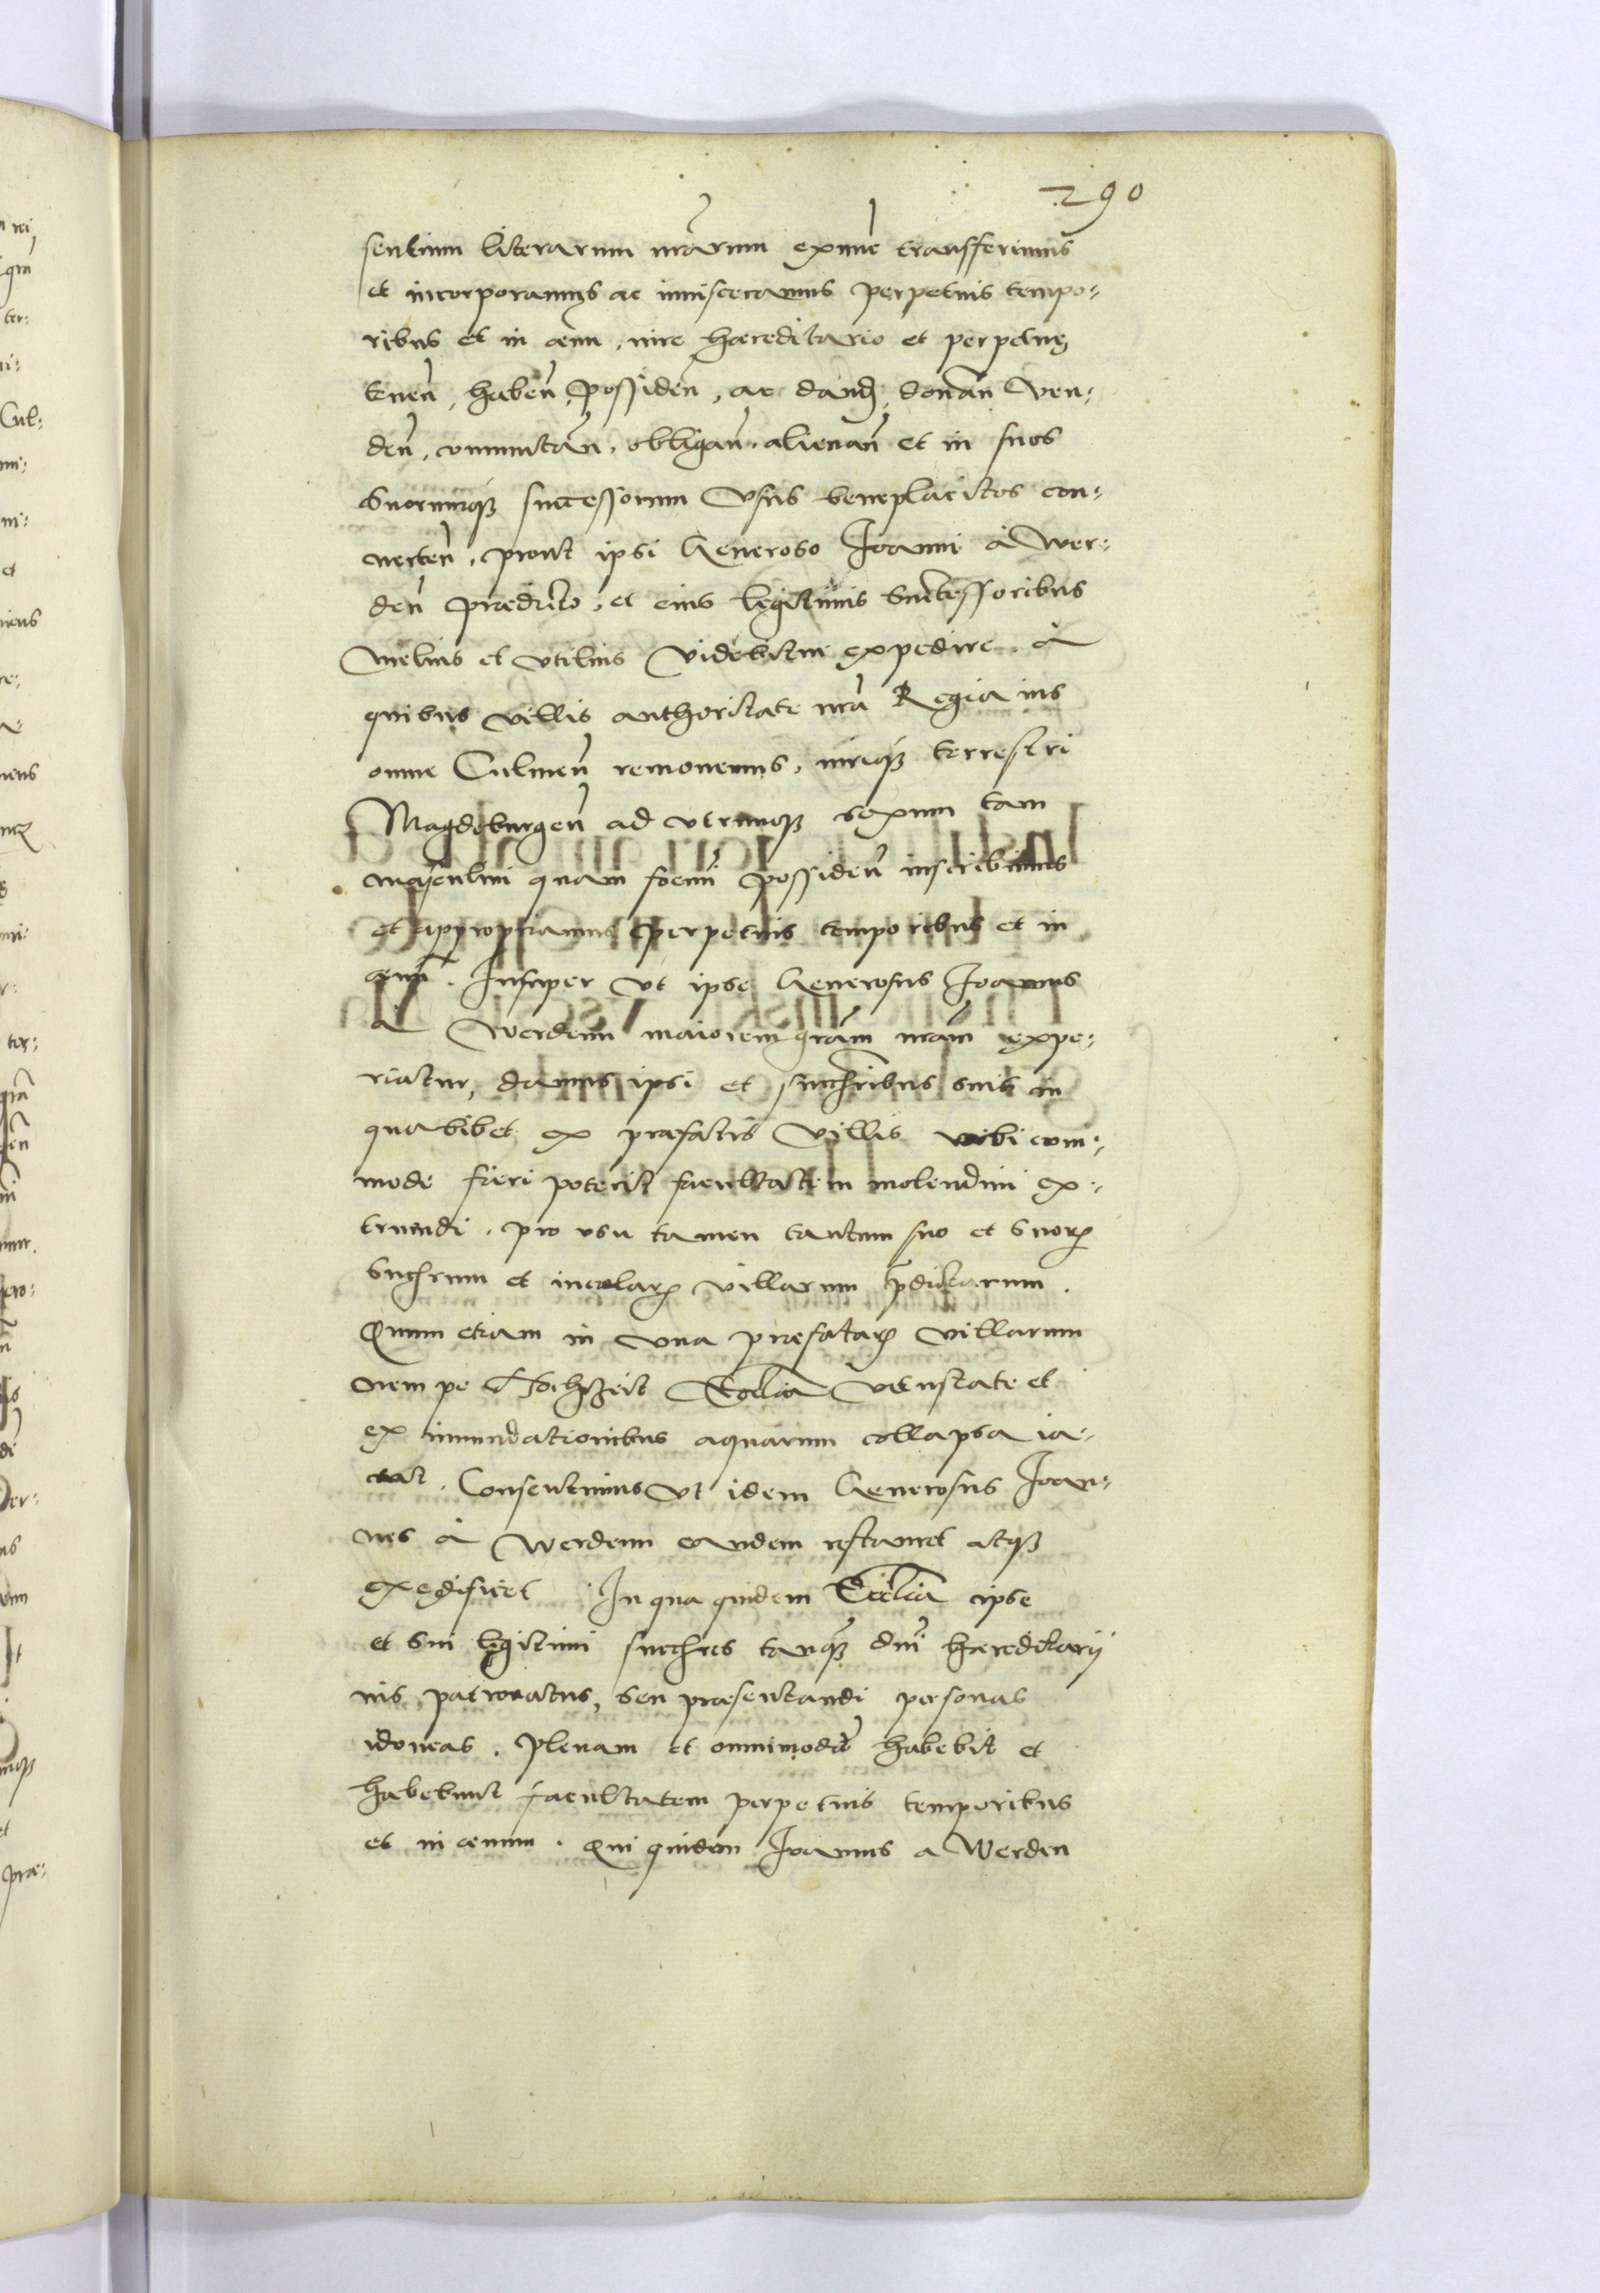 290
sentium literarum nrarum exnue transferimus
et incorporamus ac invisceramus perpetuis tempo-
ribus et in aevu, iure haereditario et perpetuo
tenen, haben, possiden, ac dand, donan ven-
den, commutan, obligan, alienan et in suos
suorumque successorum usus beneplacitos con-
verten, prout ipsi Generoso Joanni à Wer-
den praedicto, et eius legitimis successoribus
melius et utilius videbitur expedire. à
quibus villis authoritate nra Regia ius
omne Culmen removemus, iureque terrestri
Magdeburgen ad utrumque sexum tam
masculini quam foemi possiden inscribimus
et appropriamus perpetuis temporibus et in
aevu. Insuper ut ipse Generosus Joannes
à Werdenn maiorem gram nram expe-
riatur, damus ipsi et succribus suis in
qualibet ex praefatis villis ubi com-
mode fieri poterit facultatem molendini ex-
truendi, pro usu tamen tantum suo et suor
succrum et incolar villarum pdictarum.
Quum etiam in una praefatar villarum
nempe Hochzeit Ecclia vetustate et
ex inundationibus aquarum collapsa ia-
ceat. Consentimus ut idem Generosus Joan-
nes à Werdenn eandem restauret atque
exedificet. In qua quidem Ecclia ipse
et sui legitimi succres tanque dni haereditarij
ius patronatus, seu praesentandi personas
idoneas, plenam et omnimoda habebit et
habebunt facultatem perpetuis temporibus
et in aevum. Qui quidem Joannes a Werden